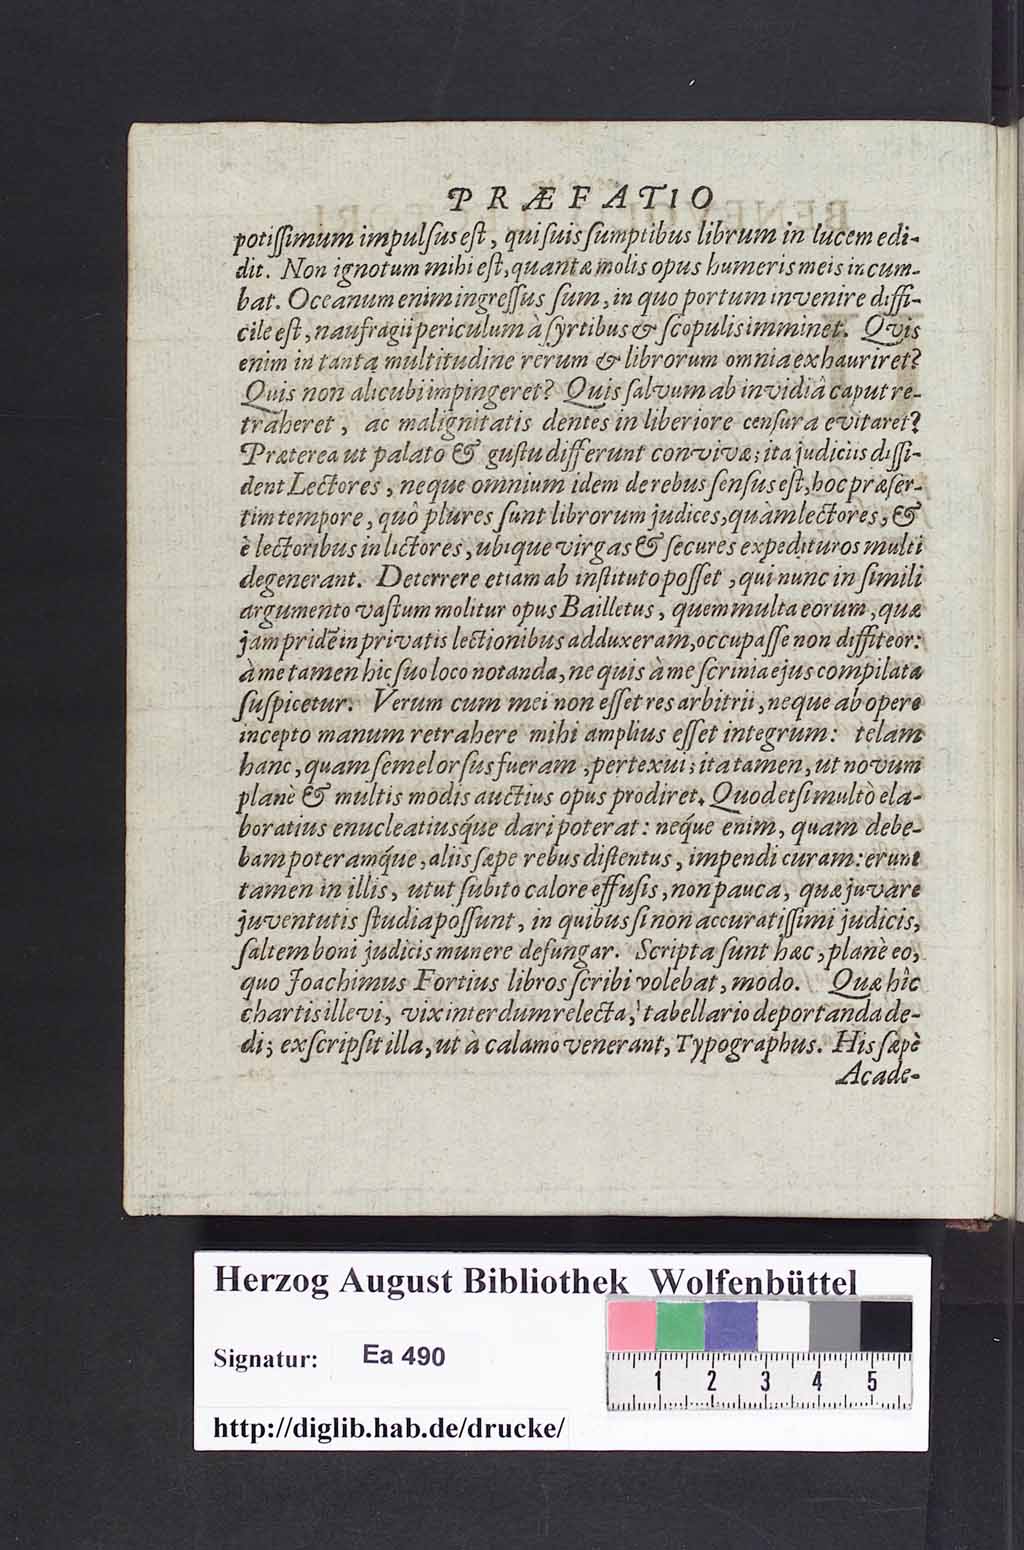 PRÆFATIO
potiſſimum impulſus eſt, qui ſuis ſumptibus librum in lucem edi-
dit. Non ignotum mihi eſt, quantæ molis opus humeris meis incum-
bat. Oceanum enim ingreſſus ſum, in quo portum invenire diffi-
cile eſt, naufragii periculum à ſyrtibus & ſcopulis imminet. Qvis
enim in tanta multitudine rerum & librorum omnia exhauriret?
Quis non alicubi impingeret? Quis ſalvum ab invidiâ caput re-
traheret, ac malignitatis dentes in liberiore cenſura evitaret?
Præterea ut palato & guſtu differunt convivæ; ita judiciis diſſi-
dent Lectores, neque omnium idem de rebus ſenſus eſt, hoc præſer-
tim tempore, quò plures ſunt librorum judices, quàm lectores, &
è lectoribus in lictores, ubique virgas & ſecures expedituros multi
degenerant. Deterrere etiam ab inſtituto poſſet, qui nunc in ſimili
argumento vaſtum molitur opus Bailletus, quem multa eorum, quæ
jam pridẽ in privatis lectionibus adduxeram, occupaſſe non diffiteor:
à me tamen hic ſuo loco notanda, ne quis à me ſcrinia ejus compilata
ſuſpicetur. Verum cum mei non eſſet res arbitrii, neque ab opere
incepto manum retrahere mihi amplius eſſet integrum: telam
hanc, quam ſemel orſus fueram, pertexui; ita tamen, ut novum
planè & multis modis auctius opus prodiret. Quod etſi multò ela-
boratius enucleatiusq́ue dari poterat: neq́ue enim, quam debe-
bam poteramq́ue, aliis ſæpe rebus diſtentus, impendi curam: erunt
tamen in illis, utut ſubito calore effuſis, non pauca, quæ juvare
juventutis ſtudia poſſunt, in quibus ſi non accuratiſſimi judicis,
ſaltem boni judicis munere defungar. Scripta ſunt hæc, planè eo,
quo Joachimus Fortius libros ſcribi volebat, modo. Quæ hîc
chartis illevi, vix interdum relecta, tabellario deportanda de-
di; exſcripſit illa, ut à calamo venerant, Typographus. His ſæpè
Acade-
Herzog August Bibliothek Wolfenbüttel
Signatur: Ea 490
1 2 3 4 5
http://diglib.hab.de/drucke/